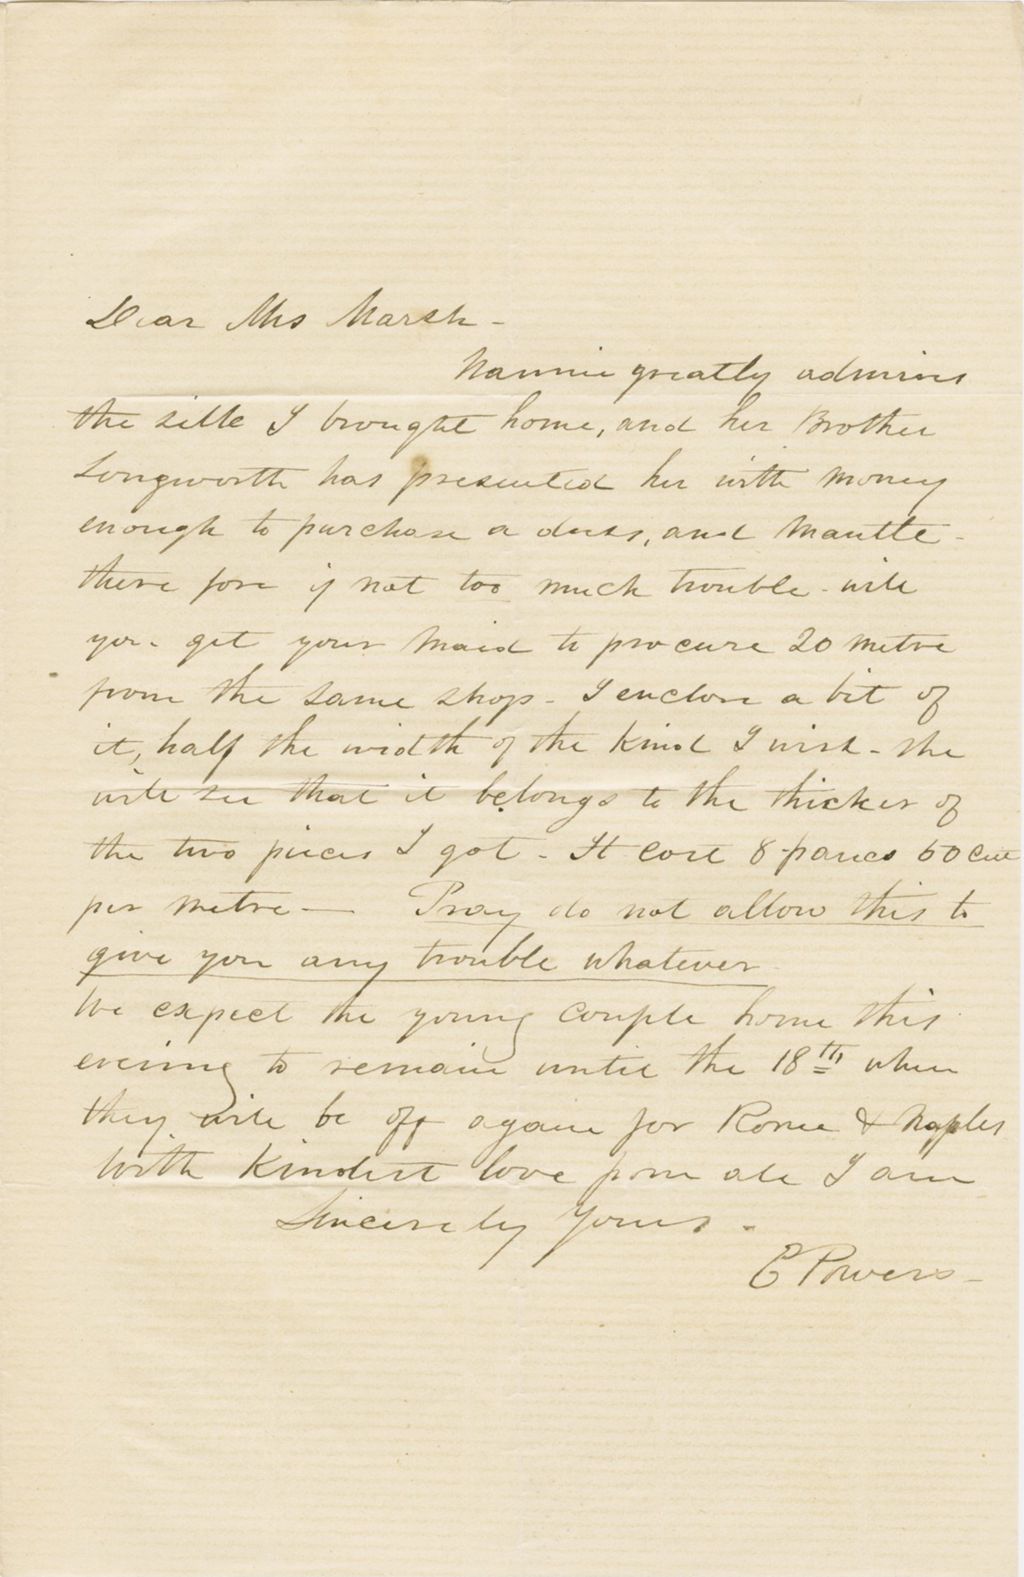 Dear Mrs Marsh -
Nannie greatly admires
the silk I brought home, and her Brother
Longworth has presented her with money
enough to purchase a dress, and Mantle -
there fore if not too much trouble - will
you - get your Maid to procure 20 metre
from the same shop - I enclose a bit of
it, half the width of the kind I wish - she
will see that it belongs to the thicker of
the two pieces I got - It cost 8 francs 60 cen
per metre — Pray do not allow this to
give you any trouble whatever
We expect the young couple home this
evening to remain until the 18th when
they will be off again for Rome & Naples
With Kindest love from all I am
Sincerely Yours -
E Powers -